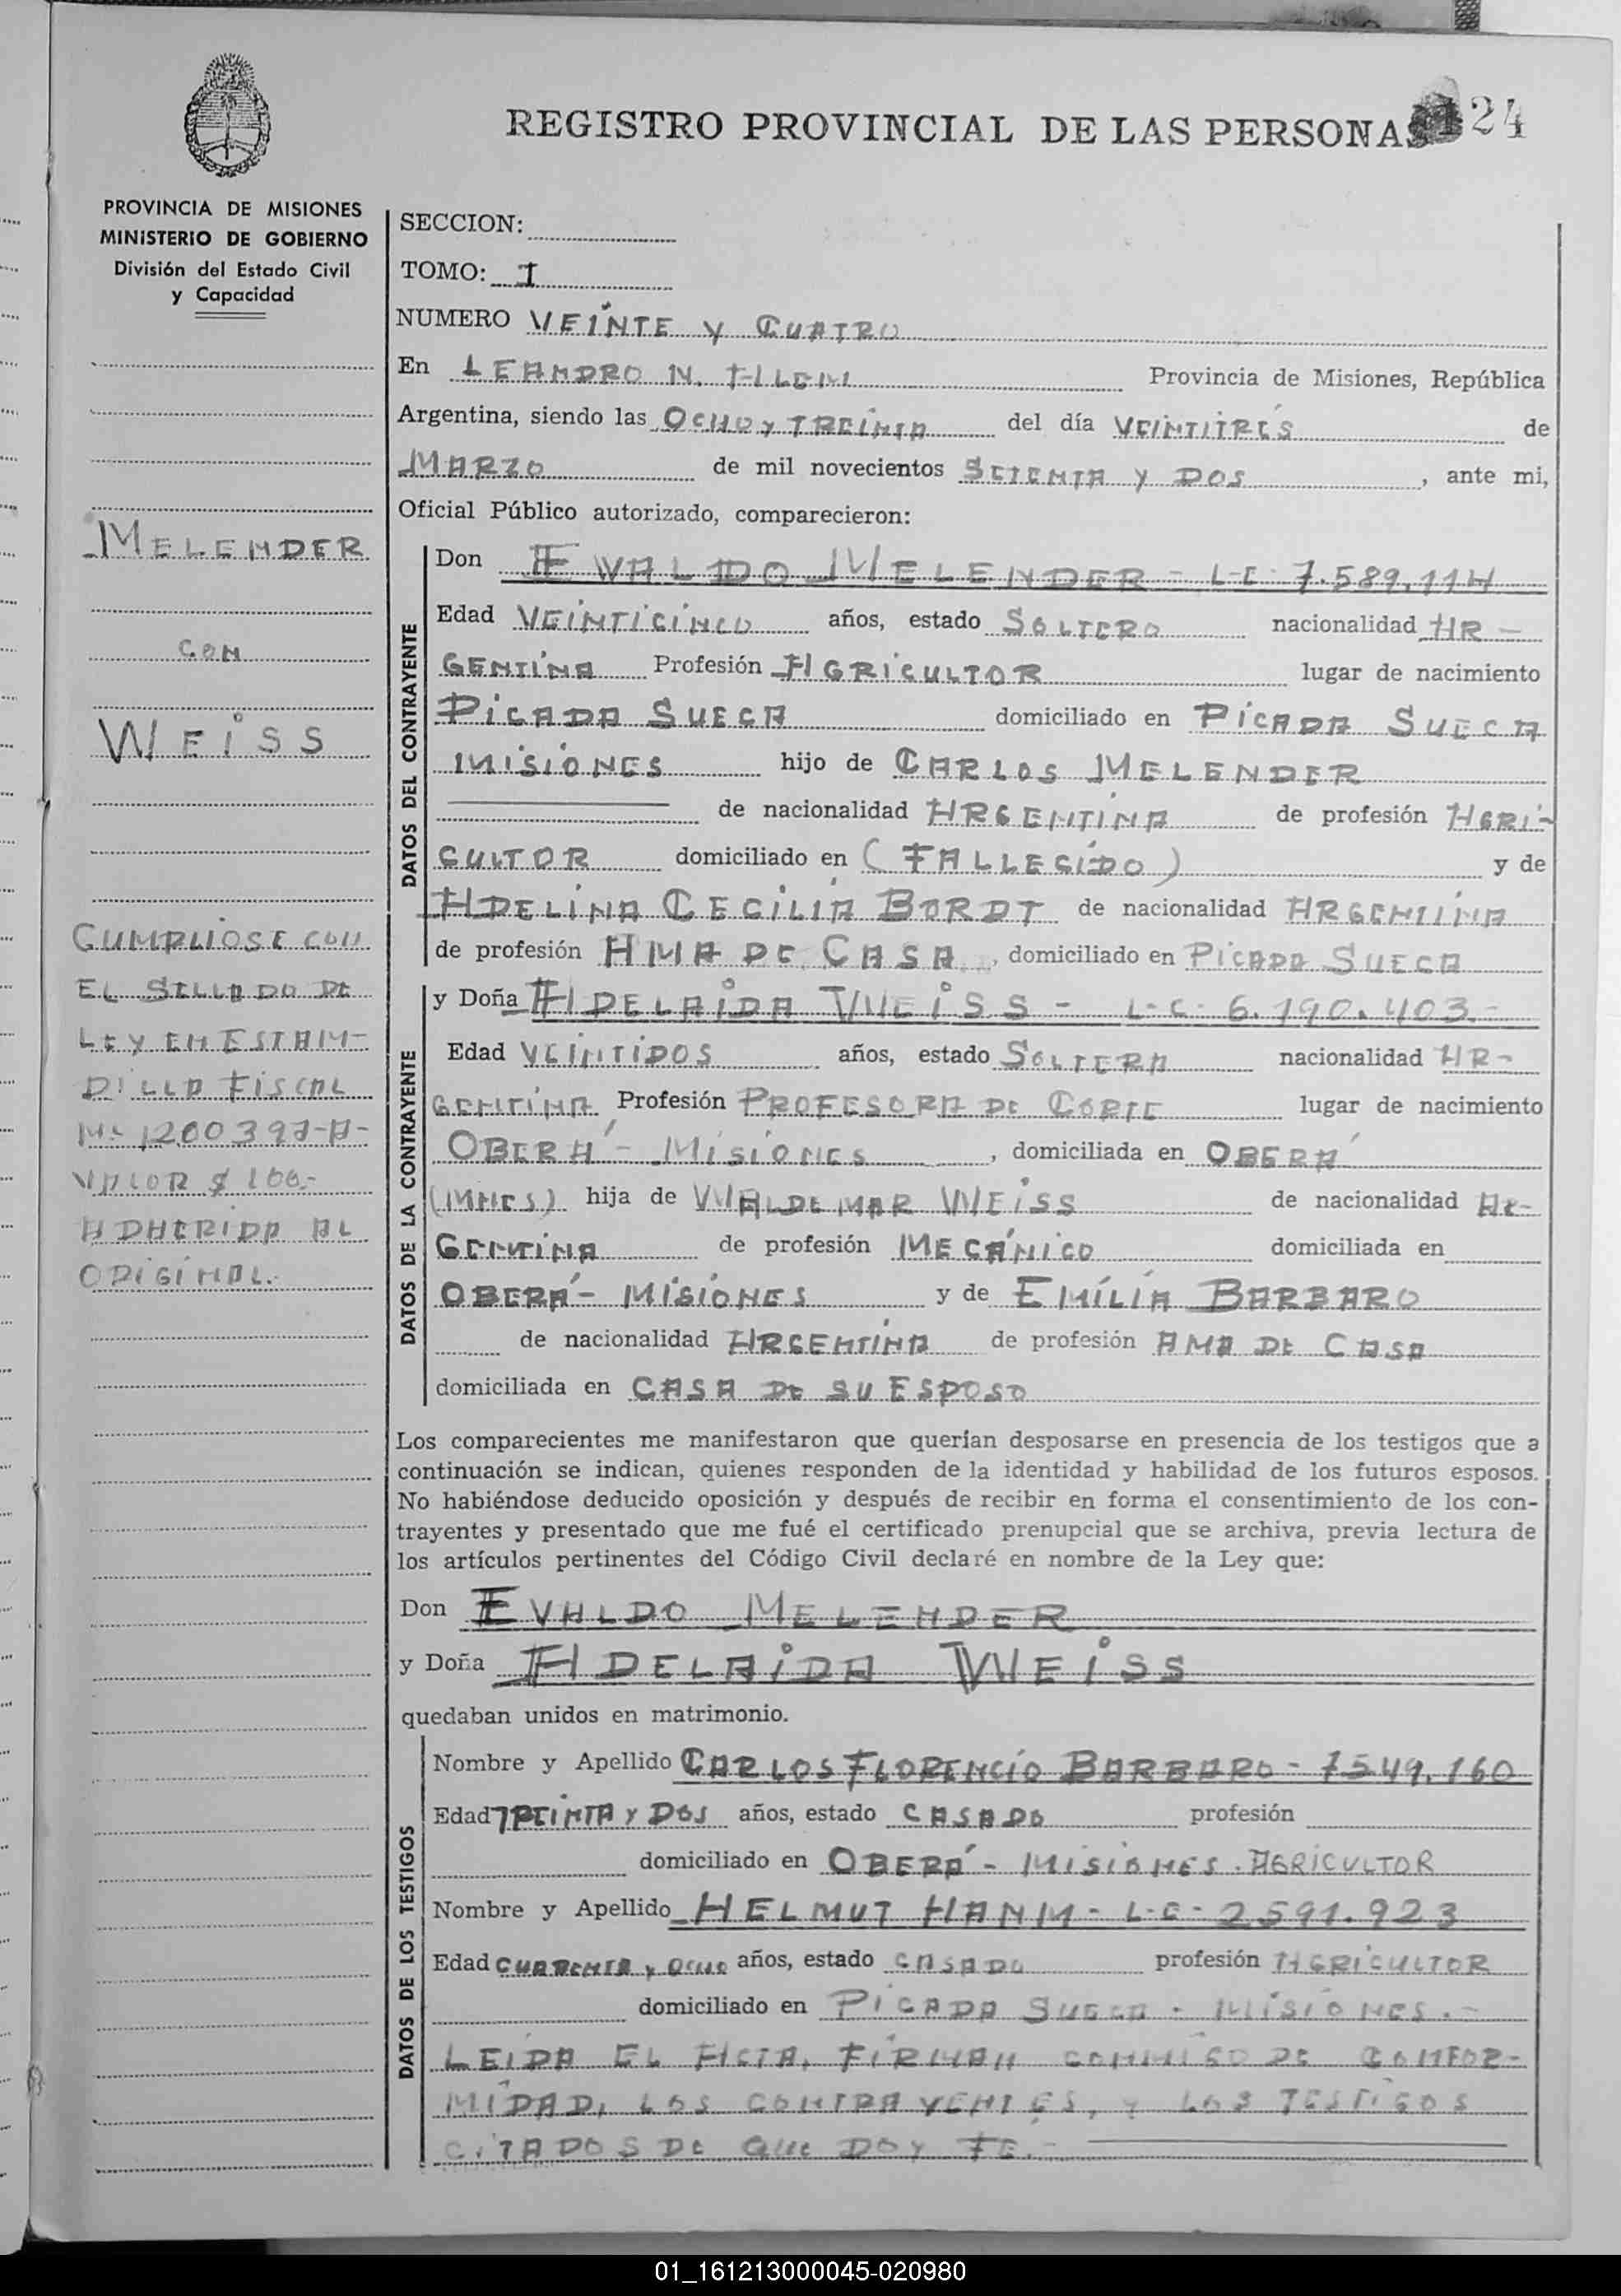 REGISTRO PROVINCIAL DE LAS PERSONAS 24
PROVINCIA DE MISIONES
MINISTERIO DE GOBIERNO
División del Estado Civil
y Capacidad
MELENDER
CON
WEISS
CUMPLIOSE CON
EL SELLADO DE
LEY EN ESTAM-
PILLA FISCAL
Nº 1200397-A-
VALOR $ 100.-
ADHERIDA AL
ORIGINAL.
SECCION:
TOMO: I
NUMERO VEINTE Y CUATRO
En LEANDRO N. ALEM Provincia de Misiones, República
Argentina, siendo las OCHO Y TREINTA del día VEINTITRES de
MARZO de mil novecientos SETENTA Y DOS, ante mi,
Oficial Público autorizado, comparecieron:
DATOS DEL CONTRAYENTE
Don EVALDO MELENDER - L-E- 7.589.114
Edad VEINTICINCO años, estado SOLTERO nacionalidad AR-
GENTINA Profesión AGRICULTOR lugar de nacimiento
PICADA SUECA domiciliado en PICADA SUECA
MISIONES hijo de CARLOS MELENDER
de nacionalidad ARGENTINA de profesión AGRI-
CULTOR domiciliado en (FALLECIDO) y de
ADELINA CECILIA BORDT de nacionalidad ARGENTINA
de profesión AMA DE CASA, domiciliado en PICADA SUECA
DATOS DE LA CONTRAYENTE
y Doña ADELAIDA WEISS - L-C- 6.190.403.-
Edad VEINTIDOS años, estado SOLTERA nacionalidad AR-
GENTINA Profesión PROFESORA DE CORTE lugar de nacimiento
OBERÁ - MISIONES, domiciliada en OBERÁ
(MNES) hija de WALDEMAR WEISS de nacionalidad AR-
GENTINA de profesión MECÁNICO domiciliada en
OBERÁ - MISIONES y de EMÍLIA BARBARO
de nacionalidad ARGENTINA de profesión AMA DE CASA
domiciliada en CASA DE SU ESPOSO
Los comparecientes me manifestaron que querían desposarse en presencia de los testigos que a
continuación se indican, quienes responden de la identidad y habilidad de los futuros esposos.
No habiéndose deducido oposición y después de recibir en forma el consentimiento de los con-
trayentes y presentado que me fué el certificado prenupcial que se archiva, previa lectura de
los artículos pertinentes del Código Civil declaré en nombre de la Ley que:
Don EVALDO MELENDER
y Doña ADELAIDA WEISS
quedaban unidos en matrimonio.
DATOS DE LOS TESTIGOS
Nombre y Apellido CARLOS FLORENCIO BARBARO - 7549.160
Edad TREINTA Y DOS años, estado CASADO profesión
domiciliado en OBERÁ - MISIONES. AGRICULTOR
Nombre y Apellido HELMUT HANM - L-E- 2.591.923
Edad CUARENTA Y OCHO años, estado CASADO profesión AGRICULTOR
domiciliado en PICADA SUECA - MISIONES.-
LEIDA EL ACTA, FIRMAN CONMIGO DE CONFOR-
MIDAD, LOS CONTRAYENTES, Y LOS TESTIGOS
CITADOS DE QUE DOY FE.-
01_161213000045-020980